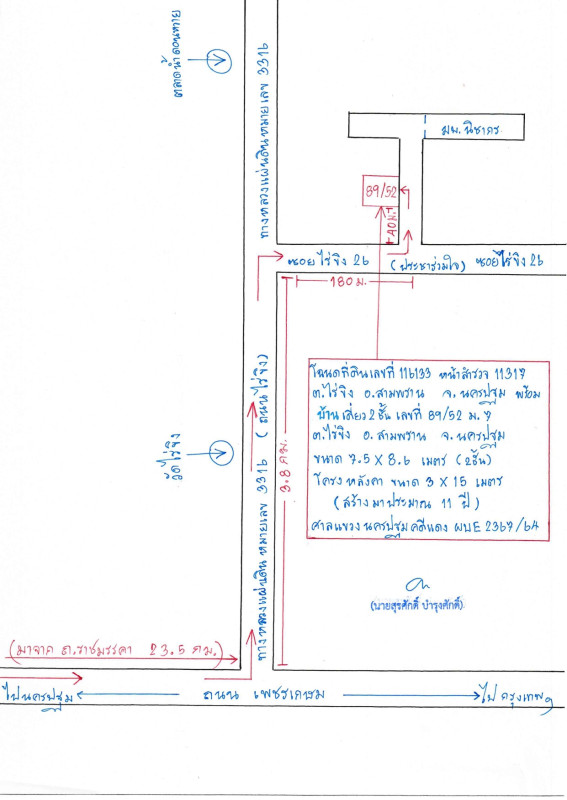 ตลาดน้ำดอนหวาย
ทางหลวงแผ่นดินหมายเลข 3316
มบ. นิชาภร
89/52
40 ม.
ซอยไร่ขิง 26 (ประชาร่วมใจ) ซอยไร่ขิง 26
180 ม.
โฉนดที่ดินเลขที่ 116133 หน้าสำรวจ 11317
ต.ไร่ขิง อ.สามพราน จ.นครปฐม พร้อม
บ้านเดี่ยว 2 ชั้น เลขที่ 89/52 ม.7
ต.ไร่ขิง อ.สามพราน จ.นครปฐม
ขนาด 7.5 X 8.6 เมตร (2ชั้น)
โครงหลังคา ขนาด 3 X 15 เมตร
(สร้างมาประมาณ 11 ปี)
ศาลแขวงนครปฐม คดีแดง ผบE 2367/64
วัดไร่ขิง
ทางหลวงแผ่นดินหมายเลข 3316 (ถนนไร่ขิง)
3.8 กม.
(นายสุรศักดิ์ บำรุงศักดิ์)
(มาจาก ถ.ราชมรรคา 23.5 กม.)
ไปนครปฐม
ถนน เพชรเกษม
ไปกรุงเทพๆ